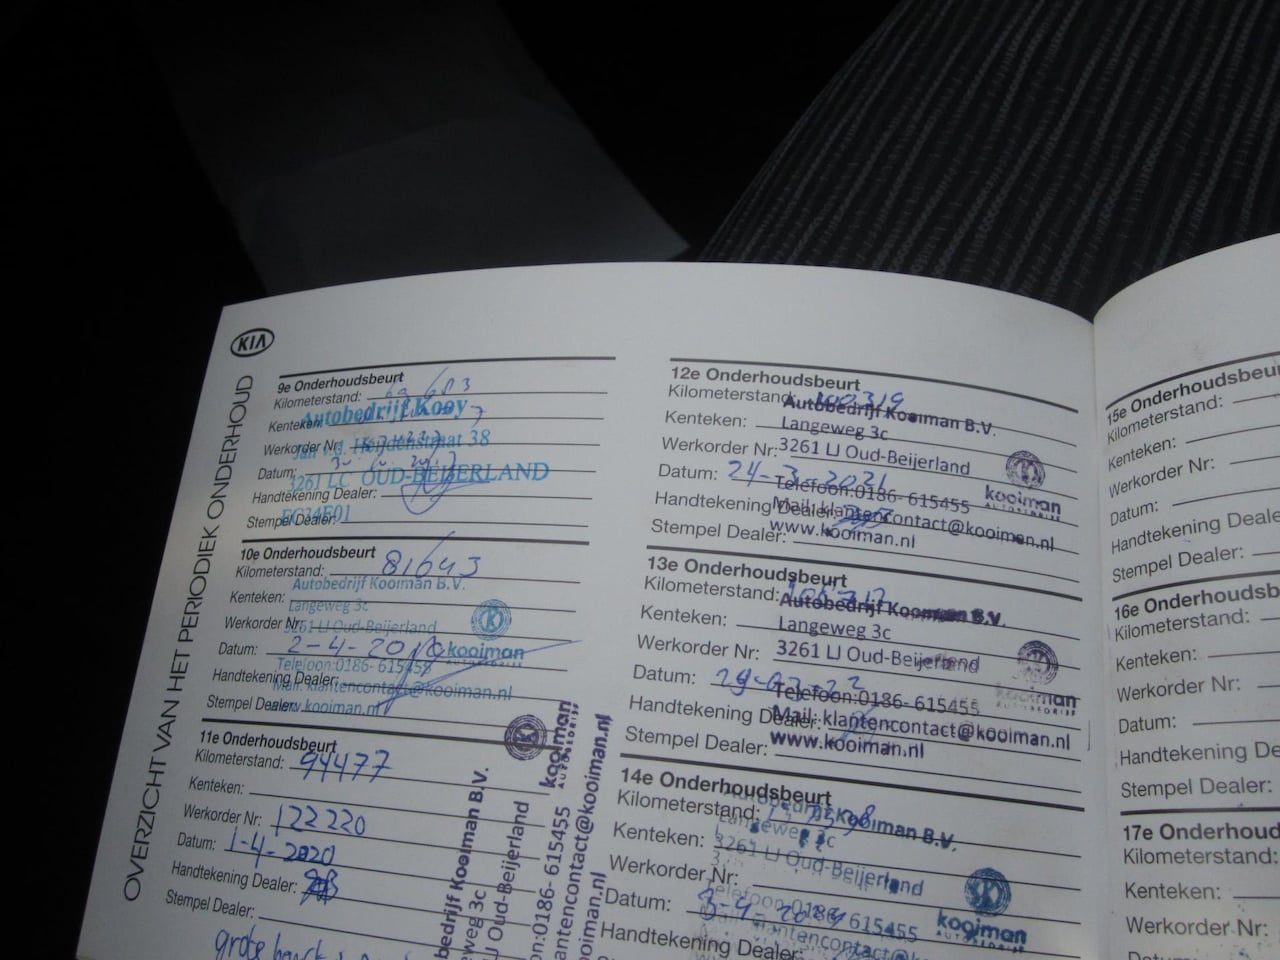 KIA
OVERZICHT VAN HET PERIODIEK ONDERHOUD
9e Onderhoudsbeurt
Kilometerstand:
Autobedrijf Kooy
Kenteken:
Werkorder Nr:
38
Datum:
3261 LC OUD-BEIJERLAND
Handtekening Dealer:
Stempel Dealer:
10e Onderhoudsbeurt
Kilometerstand: 81643
Autobedrijf Kooiman B.V.
Kenteken:
Langeweg 3c
Werkorder Nr:
3261 LJ Oud-Beijerland
Datum: 2-4-20
kooiman
Telefoon:0186- 615455
Handtekening Dealer:
Mail: klantencontact@kooiman.nl
Stempel Dealer:
www.kooiman.nl
11e Onderhoudsbeurt
Kilometerstand: 94477
Kenteken:
Werkorder Nr: 122220
Datum: 1-4-2020
Handtekening Dealer:
Stempel Dealer:
grote
bedrijf Kooiman B.V.
weg 3c
LJ Oud-Beijerland
on:0186- 615455
antencontact@kooiman.nl
ooiman.nl
kooiman
AUTOBEDRIJF
12e Onderhoudsbeurt
Kilometerstand: 100319
Autobedrijf Kooiman B.V.
Kenteken:
Langeweg 3c
Werkorder Nr:
3261 LJ Oud-Beijerland
Datum: 24-3-2021
Telefoon:0186- 615455
kooiman
AUTOBEDRIJF
Handtekening Dealer:
Mail: klantencontact@kooiman.nl
Stempel Dealer:
www.kooiman.nl
13e Onderhoudsbeurt
Kilometerstand:
Autobedrijf Kooiman B.V.
Kenteken:
Langeweg 3c
Werkorder Nr:
3261 LJ Oud-Beijerland
Datum:
Telefoon:0186- 615455
kooiman
Handtekening Dealer:
Mail: klantencontact@kooiman.nl
Stempel Dealer:
www.kooiman.nl
14e Onderhoudsbeurt
Kilometerstand:
Autobedrijf Kooiman B.V.
Kenteken:
Langeweg 3c
3261 LJ Oud-Beijerland
Werkorder Nr:
Datum:
Telefoon:0186- 615455
kooiman
AUTOBEDRIJF
Handtekening Dealer:
15e Onderhoudsbeur
Kilometerstand:
Kenteken:
Werkorder Nr:
Datum:
Handtekening Deale
Stempel Dealer:
16e Onderhoudsb
Kilometerstand:
Kenteken:
Werkorder Nr:
Datum:
Handtekening De
Stempel Dealer:
17e Onderhoud
Kilometerstand:
Kenteken:
Werkorder Nr:
Datum: